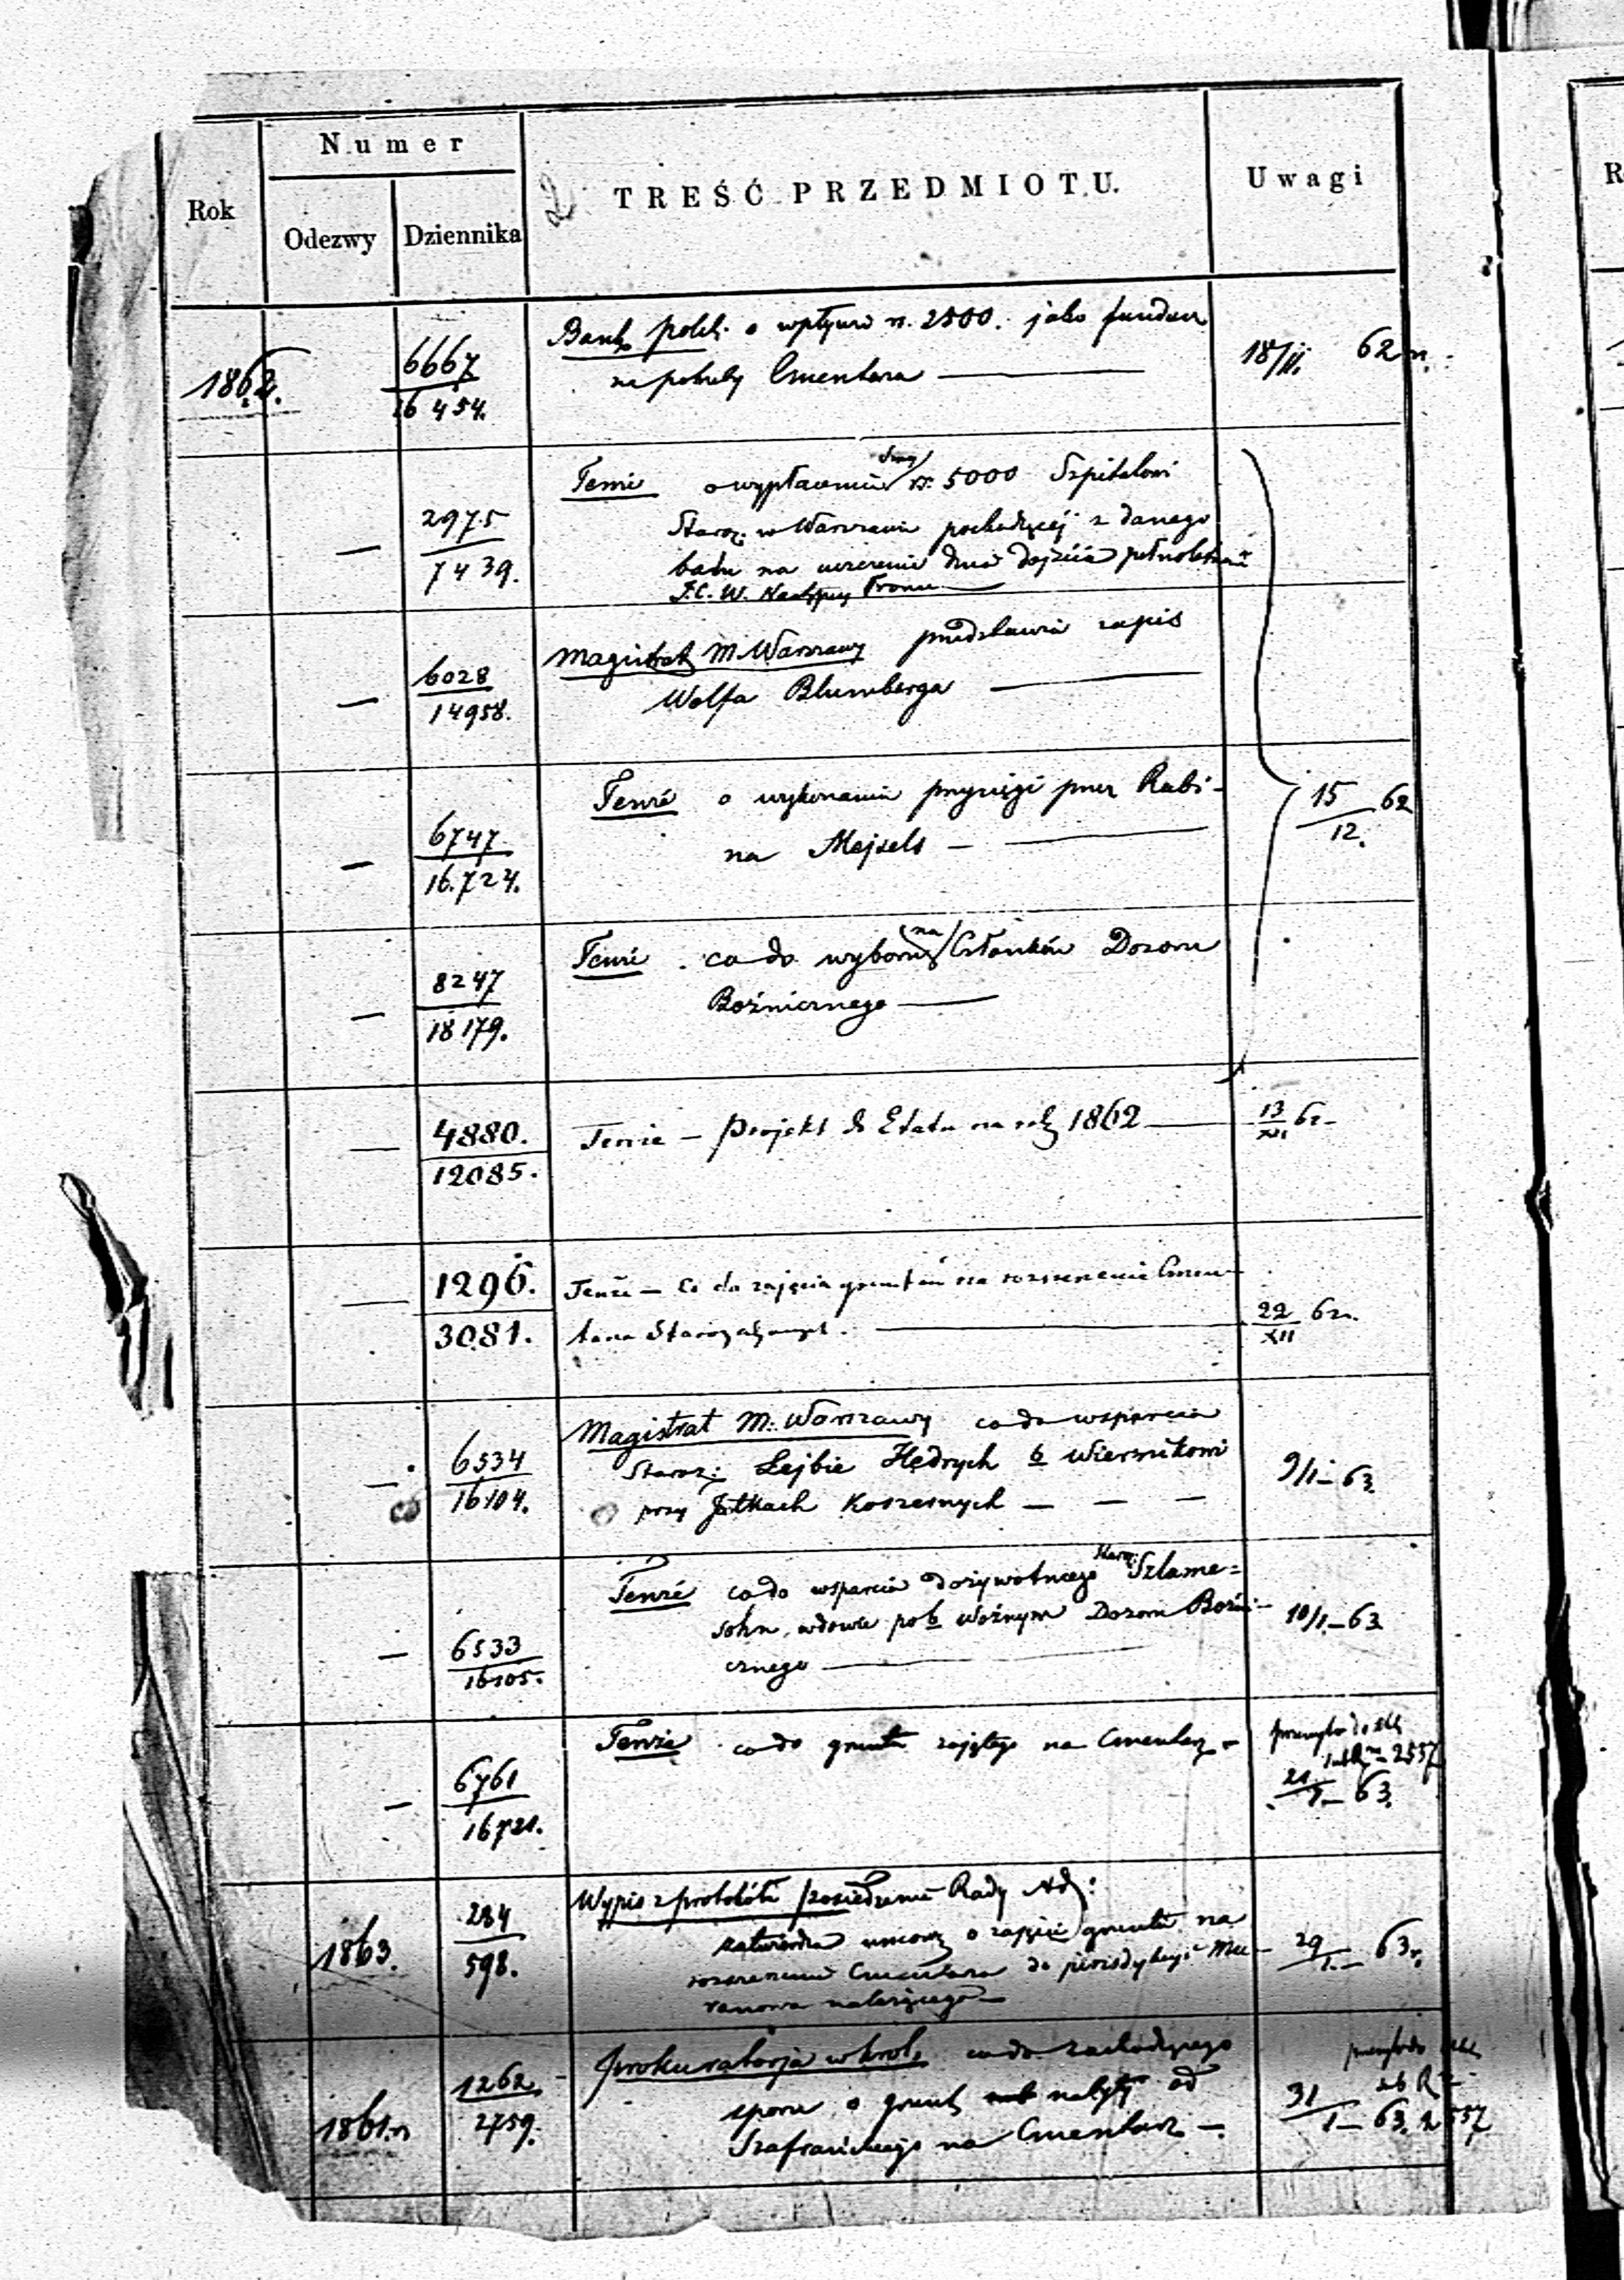 Numer
Rok
Odezwy
Dziennika
TREŚĆ PRZEDMIOTU.
Uwagi
1862.
6667
16454.
Bank Polski o wpływie rs. 2500. jako fundusz
na potrzeby Cmentarza —
18/II. 62 r.
—
2975
7439.
Tenże o wypłaceniu Sumy rs. 5000 Szpitalowi
Staroz. w Warszawie pochodzącej z danego
balu na uczczenie dnia dojścia pełnoletności
J.C.W. Następcy Tronu —
—
6028
14958.
Magistrat M. Warszawy przedstawia zapis
Wolfa Blumberga —
—
6747
16.724.
Tenże o wykonaniu przysięgi przez Rabi-
na Mejsels — —
15/12. 62
—
8247
18179.
Tenże co do wyborów na Członków Dozoru
Bożniczego —
—
4880.
12085.
Tenże — Projekt do Etatu na rok 1862 —
13/XII 62
—
1296.
3081.
Tenże — Co do zajęcia gruntów na rozszerzenie Cmen-
tarza Starozakonnych. —
22/XII 62 r.
—
6534
16104.
Magistrat M. Warszawy co do wsparcia
Staroz: Lejbie Hędrych b. Wiernikowi
przy Jatkach Koszernych — — —
9/I — 63
—
6533
16105.
Tenże co do wsparcia dożywotniego Staroz. Szlame=
sohn, wdowie po b. Woźnym Dozoru Bożni-
cznego —
10/I — 63
—
6761
16721.
Tenże co do gruntu zajętego na Cmentarz
2557
21/I — 63.
1863.
284
598.
Wypis z protokółu posiedzenia Rady Adm:
zatwierdza umowę o zajęcie gruntu na
rozszerzenie Cmentarza do jurisdykcyi Mu-
ranowa należącego —
29/I — 63 r.
1861 r
1262
2759.
Prokuratorja w Król. co do zachodzącego
sporu o grunt nabyty od
Szafrańskiego na Cmentarz —
31/I — 63. 2557